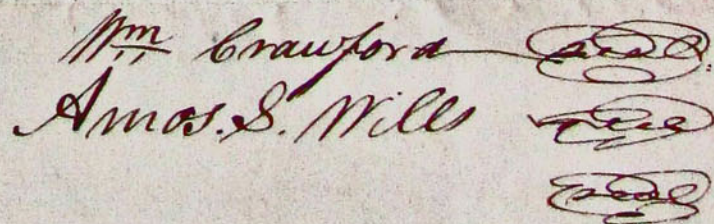 Wm Crawford seal
Amos. S. Wills seal
seal